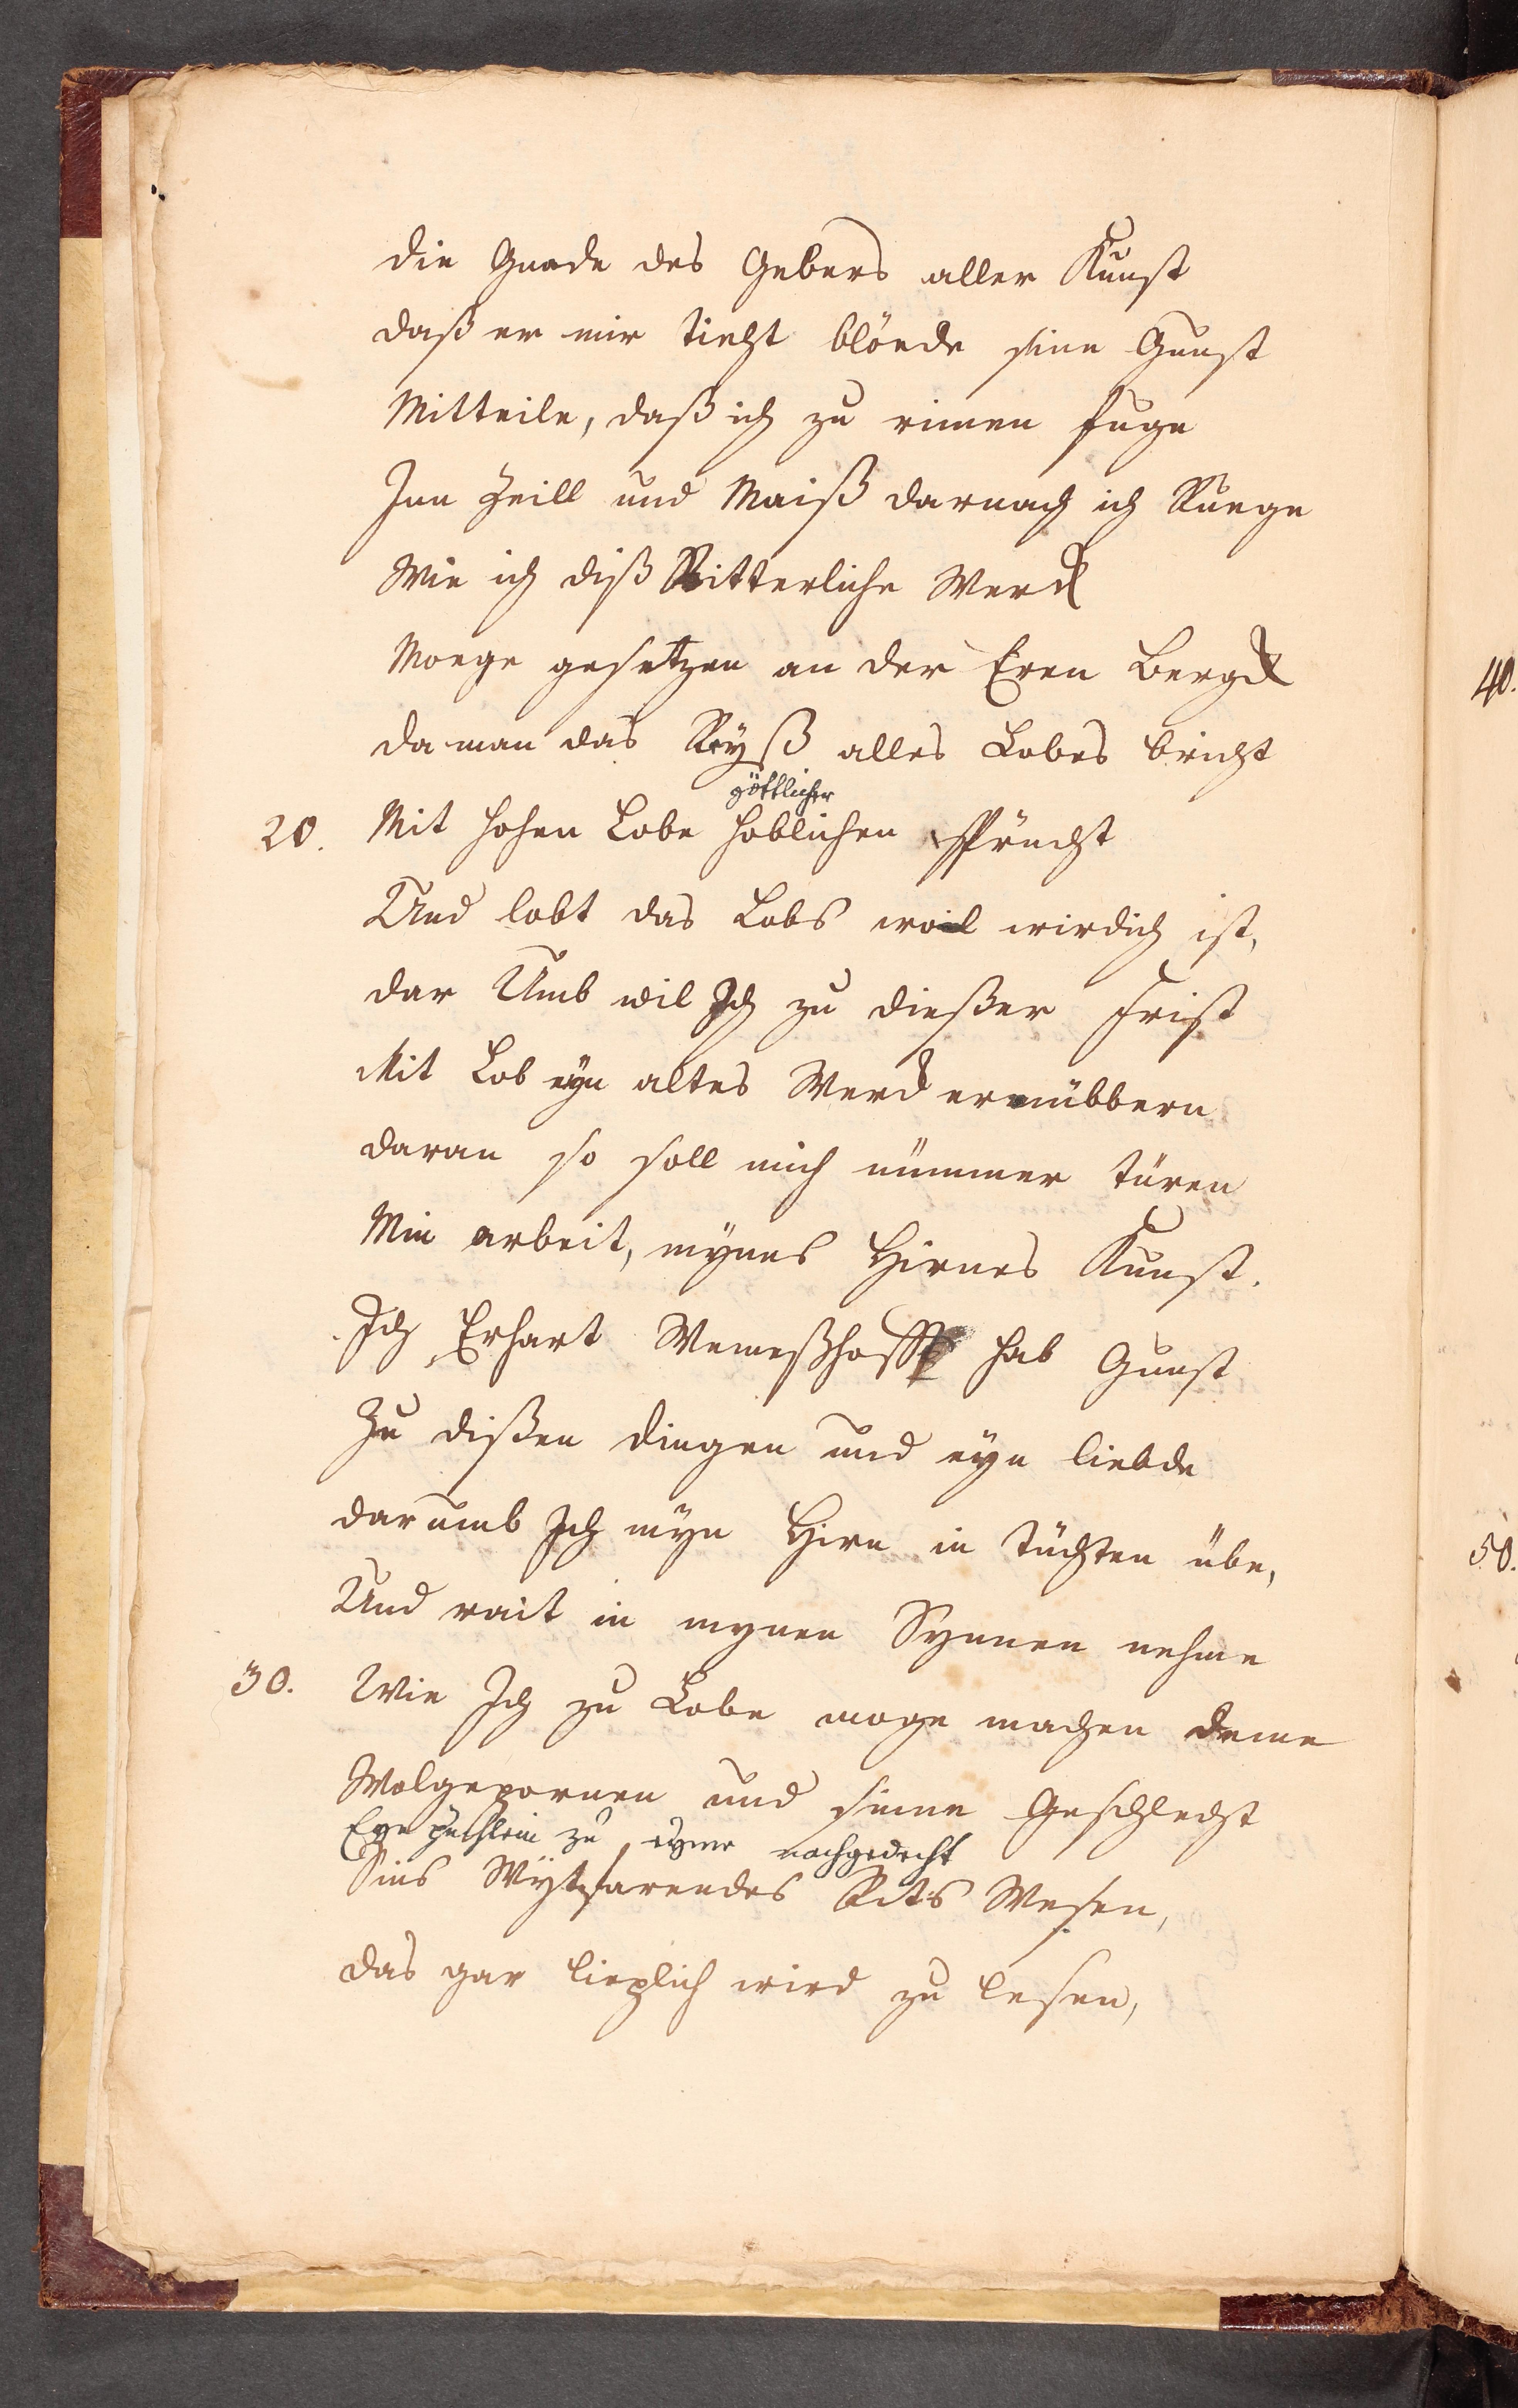 die Gnade des Gebers aller Kunst
daß er mir ticht blöede sine Gunst
Mitteile, daß ich zu rimen fuge
Inn Zeill und Maiß darnach ich Ruege
Wie ich diß Ritterliche Werck
Moege gesetzen an der Eren Bergk
da man das Ryß alles Lobes bricht
göttlicher
20. Mit hohen Lobe hoblichen Pfrucht
Und lobt das Lobs woil wirdich ist,
dar Umb wil Ich zu dießer Frist
Mit Lob eyn altes Werck ernübbern
daran so soll mich nümmer türen
Min arbeit, mÿnes Hirnes Kunst.
Ich Erhart Wameßhafft hab Gunst
Zu dißen dingen und eyn liebde
darumb Ich mÿn Hirn in tüchten übe,
Und rait in mynen Synnen nehme
30. Wie Ich zu Lobe moge machen deme
Wolgepornen und sinne Geschlecht
Eyn puchlein zu eyner nachgedecht
Sins Wytfarendes Rits Wesen,
das gar lieplich wird zu lesen,
40.
50.